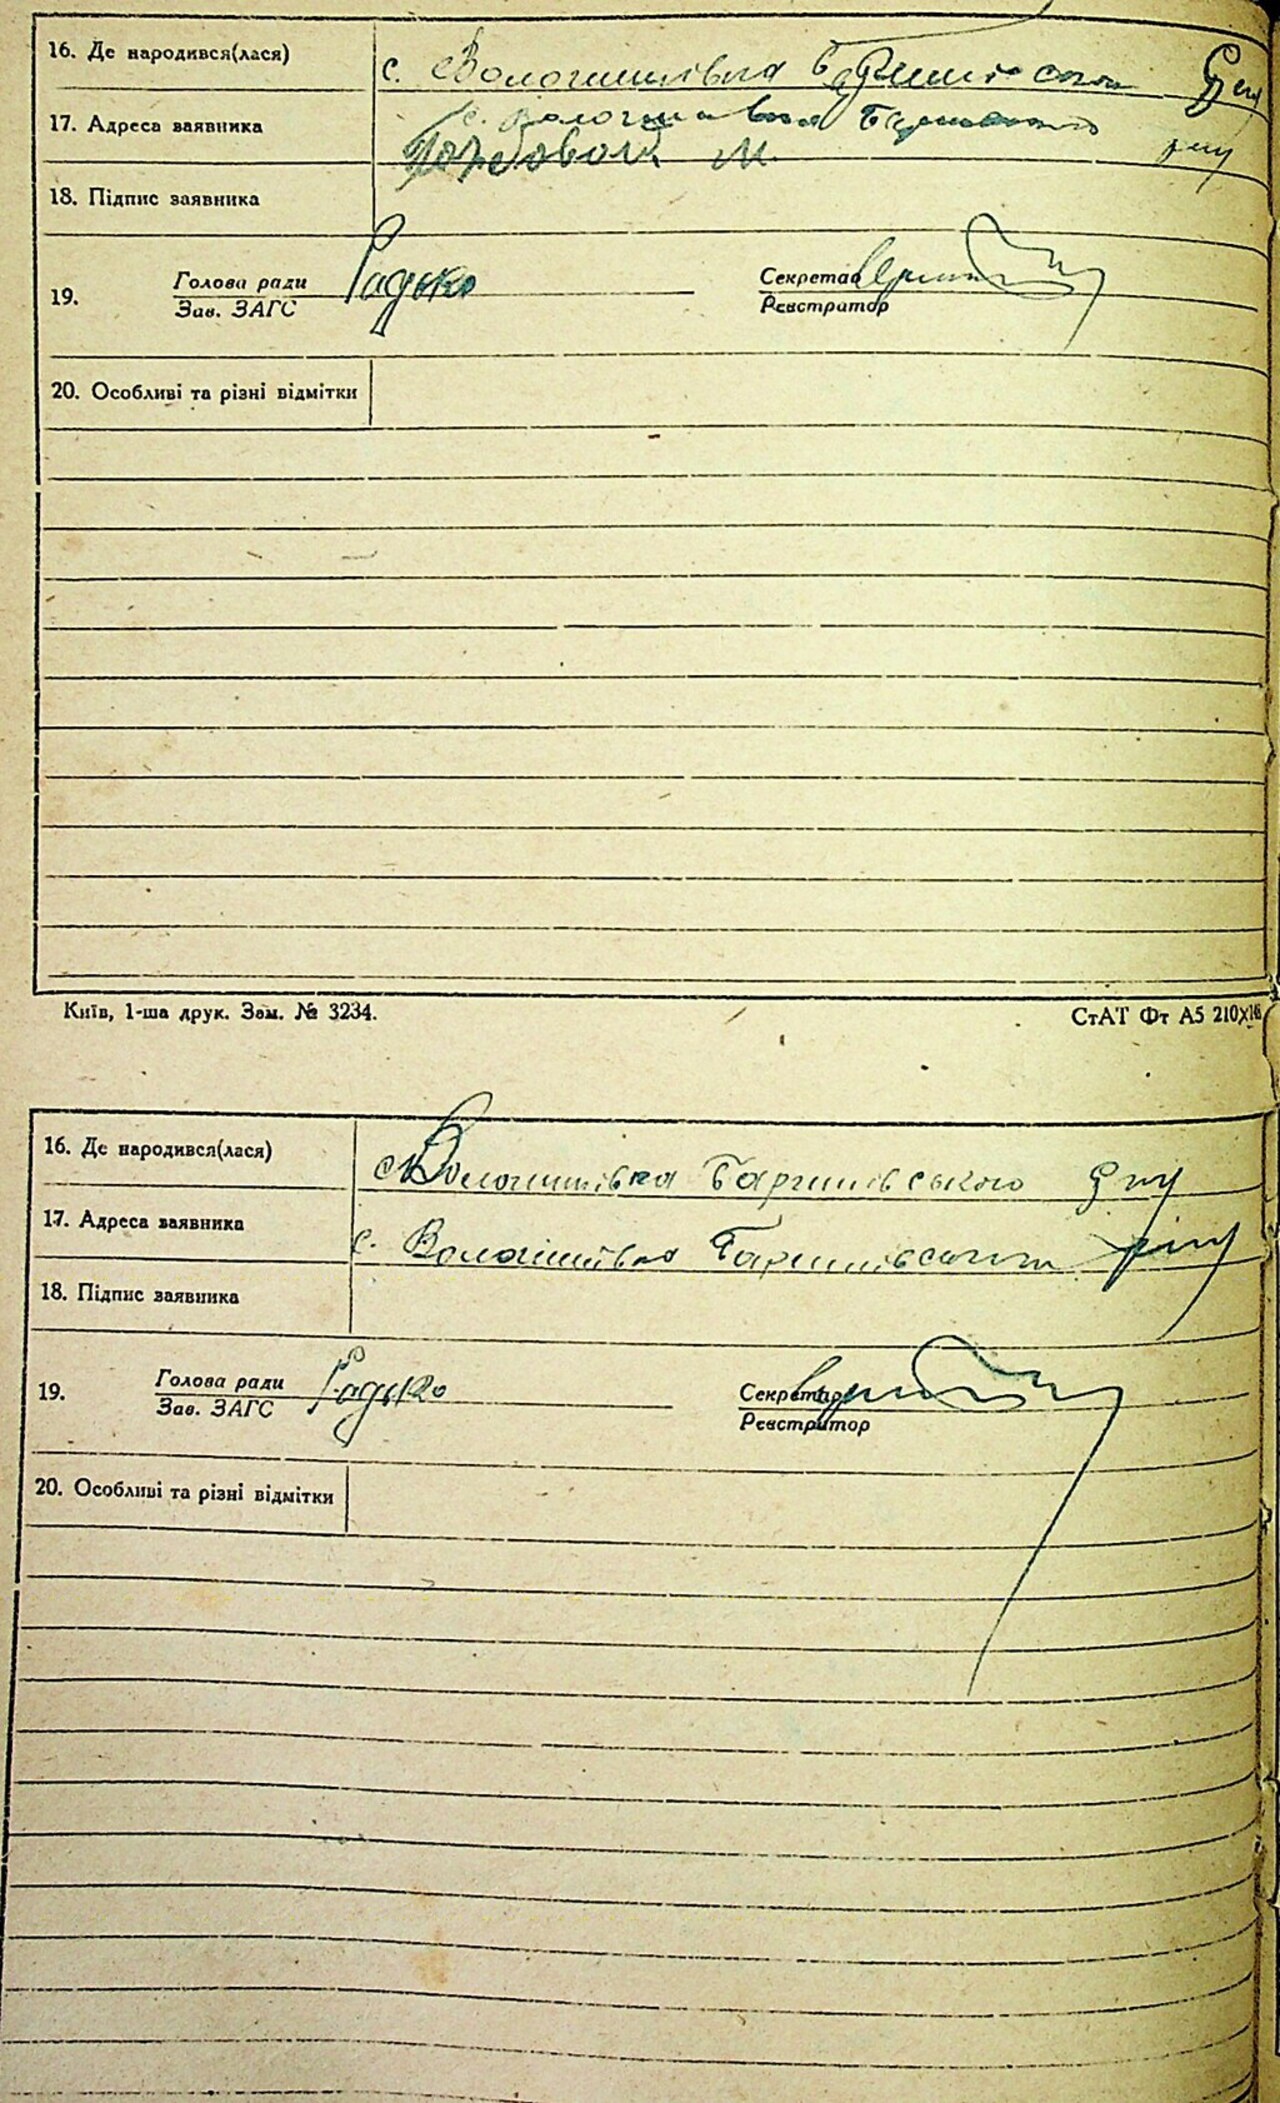 16. Де народився(лася) с. Волошинівка
17. Адреса заявника с.
18. Підпис заявника
19. Голова ради Радько Секретар
Зав. ЗАГС Реєстратор
20. Особливі та різні відмітки
Київ, 1-ша друк. Зам. № 3234. СтАТ Фт А5 210X
16. Де народився(лася) с. Волошинівка Баришівського р-ну
17. Адреса заявника с. Волошинівка Баришівського р-ну
18. Підпис заявника
19. Голова ради Радько Секретар
Зав. ЗАГС Реєстратор
20. Особливі та різні відмітки